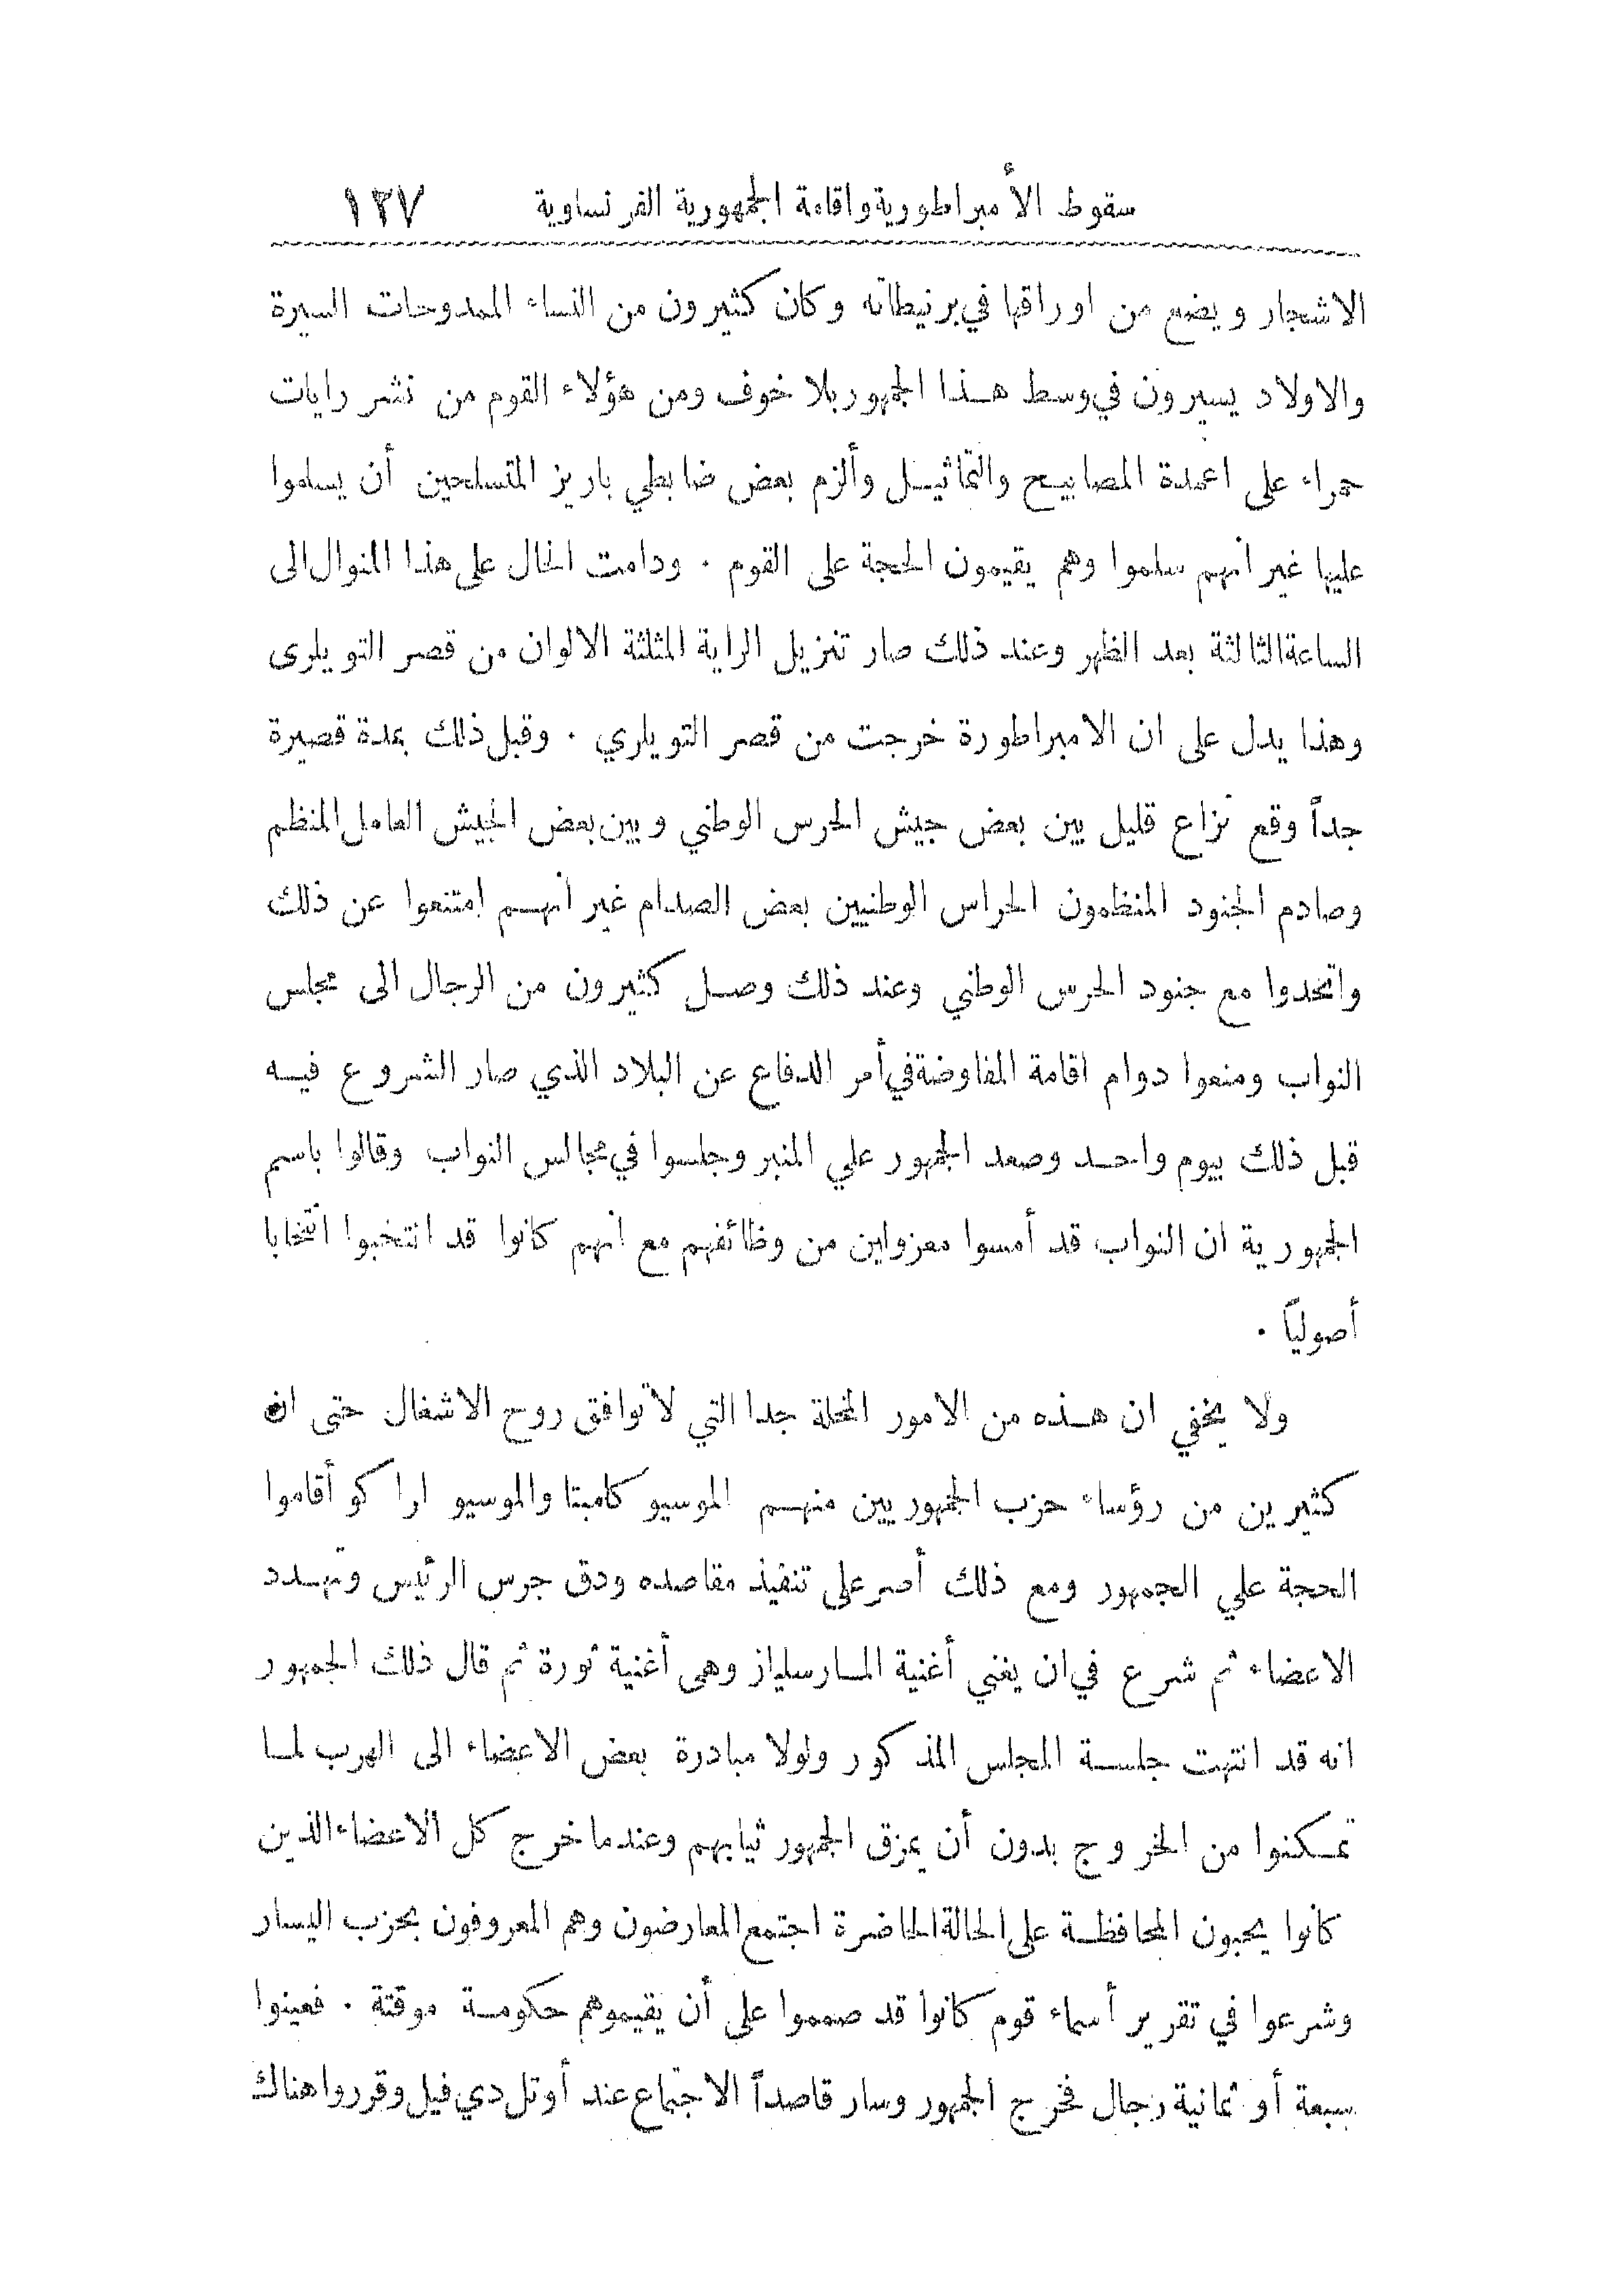 سقوط الأمبراطورية واقامة الجمهورية الفرنساوية ١٣٧
الاشجار ويضع من اوراقها في برنيطاته وكان كثيرون من النساء الممدوحات السيرة
والاولاد يسيرون في وسط هذا الجمهور بلا خوف ومن هؤلاء القوم من نشر رايات
حمراء على اعمدة المصابيح والتماثيل وألزم بعض ضابطي باريز المتسلحين أن يسلموا
عليها غير انهم سلموا وهم يقيمون الحجة على القوم . ودامت الحال على هذا المنوال الى
الساعة الثالثة بعد الظهر وعند ذلك صار تنزيل الراية المثلثة الالوان من قصر التويلرى
وهذا يدل على ان الامبراطورة خرجت من قصر التويلري . وقبل ذلك بمدة قصيرة
جداً وقع نزاع قليل بين بعض جيش الحرس الوطني وبين بعض الجيش العامل المنظم
وصادم الجنود المنظمون الحراس الوطنيين بعض الصدام غير انهم امتنعوا عن ذلك
واتحدوا مع جنود الحرس الوطني وعند ذلك وصل كثيرون من الرجال الى مجلس
النواب ومنعوا دوام اقامة المفاوضة في أمر الدفاع عن البلاد الذي صار الشروع فيه
قبل ذلك بيوم واحد وصعد الجمهور علي المنبر وجلسوا في مجالس النواب وقالوا باسم
الجمهورية ان النواب قد أمسوا معزولين من وظائفهم مع انهم كانوا قد انتخبوا انتخابا
أصولياً .
ولا يخفي ان هذه من الامور المخلة جدا التي لا توافق روح الاشغال حتى ان
كثيرين من رؤساء حزب الجمهوريين منهم الموسيو كامبتا والموسيو اراكو أقاموا
الحجة علي الجمهور ومع ذلك أصر على تنفيذ مقاصده ودق جرس الرئيس وتهدد
الاعضاء ثم شرع في ان يغني أغنية المارسلياز وهى أغنية ثورة ثم قال ذلك الجمهور
انه قد انتهت جلسة المجلس المذكور ولولا مبادرة بعض الاعضاء الى الهرب لما
تمكنوا من الخروج بدون أن يمزق الجمهور ثيابهم وعندما خرج كل الاعضاء الذين
كانوا يحبون المحافظة على الحالة الحاضرة اجتمع المعارضون وهم المعروفون بحزب اليسار
وشرعوا في تقرير أسماء قوم كانوا قد صمموا على أن يقيموهم حكومة موقتة . فعينوا
سبعة أو ثمانية رجال فخرج الجمهور وسار قاصداً الاجتماع عند أوتل دي فيل وقرروا هناك